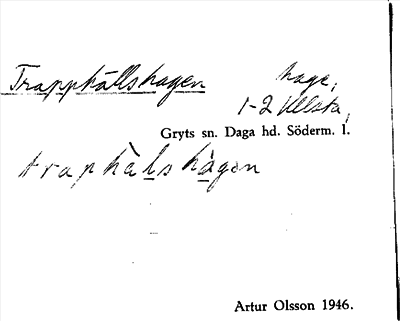 Trappkällshagen hage,
1-2 Ullsta,
Gryts sn. Daga hd. Söderm. l.
trapkàlshàgen
Artur Olsson 1946.